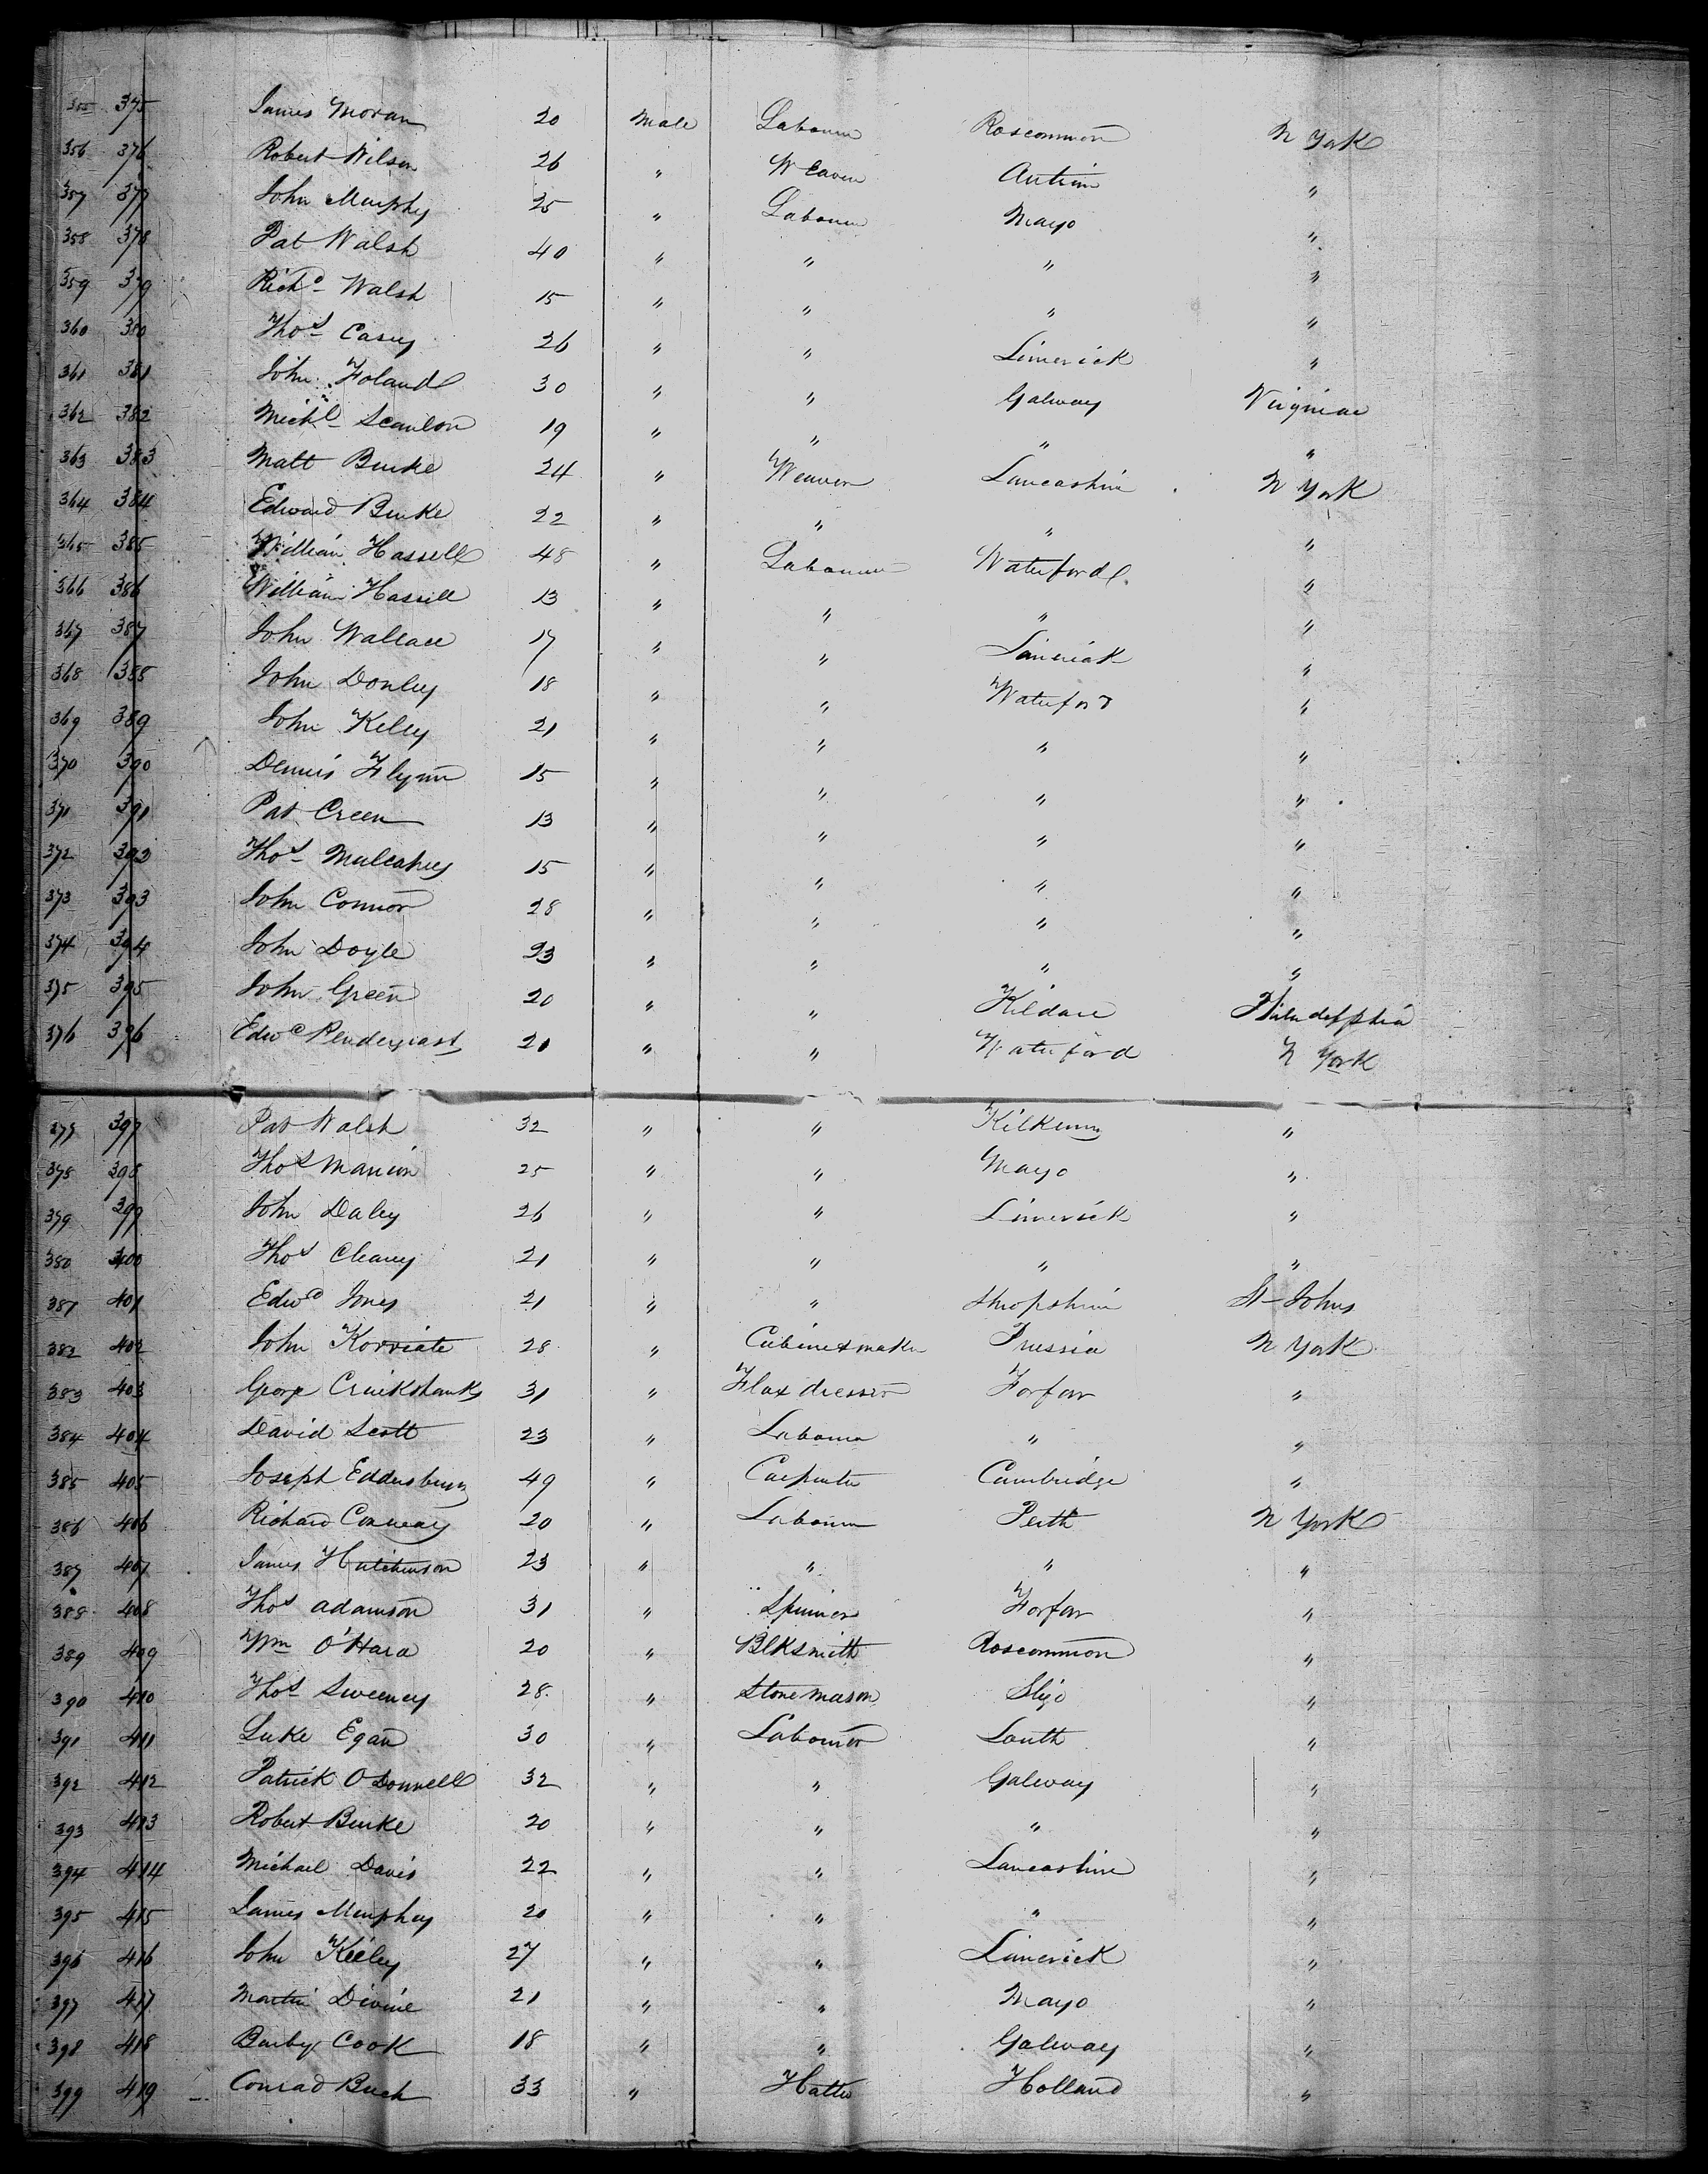 355 375 James Moran 20 Male Labourer Roscommon N York
356 376 Robert Wilson 26 " Weaver Antrim "
357 377 John Murphy 25 " Labourer Mayo "
358 378 Pat Walsh 40 " " " "
359 379 Richd Walsh 15 " " " "
360 380 Thos Casey 26 " " Limerick "
361 381 John Foland 30 " " Galway Virginia
362 382 Michl Scanlon 19 " " " "
363 383 Matt Burke 24 " Weaver Lancashire N York
364 384 Edward Burke 22 " " " "
365 385 William Hassell 48 " Labourer Waterford "
366 386 William Hassell 13 " " " "
367 387 John Wallace 17 " " Limerick "
368 388 John Donley 18 " " Waterford "
369 389 John Kelly 21 " " " "
370 390 Dennis Flynn 15 " " " "
371 391 Pat Creen 13 " " " "
372 392 Thos Mulcahey 15 " " " "
373 393 John Connor 28 " " " "
374 394 John Doyle 23 " " " "
375 395 John Green 20 " " Kildare Philadelphia
376 396 Edwd Pendergast 21 " " Waterford N York
377 397 Pat Walsh 32 " " Kilkenny "
378 398 Thos Manion 25 " " Mayo "
379 399 John Daley 26 " " Limerick "
380 400 Thos Cleary 21 " " " "
381 401 Edwd Jones 21 " " Shropshire St Johns
382 402 John Korviate 28 " Cabinetmaker Prussia N York
383 403 George Cruikshanks 31 " Flax dresser Forfar "
384 404 David Scott 23 " Labourer " "
385 405 Joseph 49 " Carpenter Cambridge "
386 406 Richard Conway 20 " Labourer Perth N York
387 407 James Hutchinson 23 " " " "
388 408 Thos Adamson 31 " Spinner Forfar "
389 409 Wm O'Hara 20 " Blksmith Roscommon "
390 410 Thos Sweeney 28 " Stone mason Sligo "
391 411 Luke Egan 30 " Labourer Louth "
392 412 Patrick O Donnell 32 " " Galway "
393 413 Robert Burke 20 " " " "
394 414 Michael Davis 22 " " Lancashire "
395 415 James Murphey 20 " " " "
396 416 John Kieley 27 " " Limerick "
397 417 Martin Divine 21 " " Mayo "
398 418 Barby Cook 18 " " Galway "
399 419 Conrad Buch 33 " Hatter Holland "